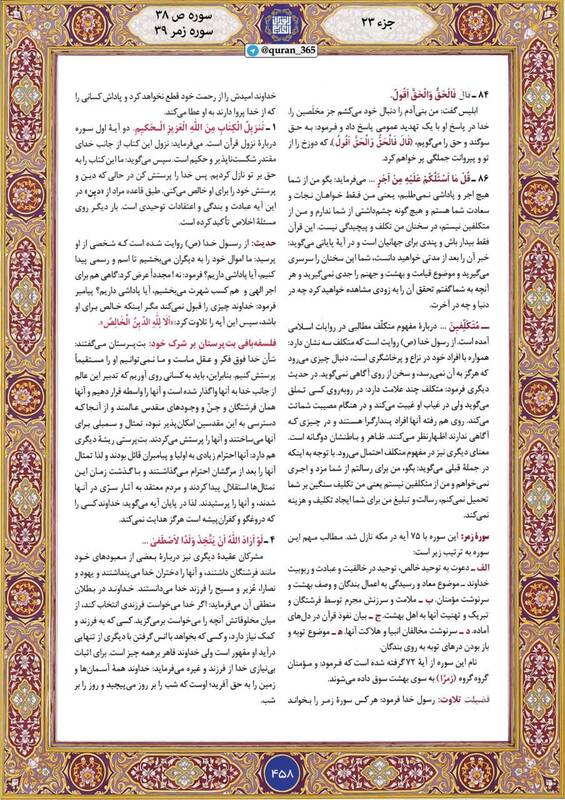 جزء ۲۳
سوره ص ۳۸
سوره زمر ۳۹
@quran_365
۸۴ ـ قالَ فَالْحَقُّ وَالْحَقَّ أَقُولُ.
ابلیس گفت: من بنی‌آدم را دنبال خود می‌کشم جز مخلَصین را.
خدا در پاسخ او با یک تهدید عمومی پاسخ داد و فرمود: به حق
سوگند و حق را می‌گویم، (قالَ فَالْحَقُّ وَالْحَقَّ أَقُولُ)، که دوزخ را از
تو و پیروانت جملگی پر خواهم کرد.
۸۶ ـ قُلْ ما أَسْئَلُكُمْ عَلَيْهِ مِنْ أَجْرٍ ... می‌فرماید: بگو من از شما
هیچ اجر و پاداشی نمی‌طلبم، یعنی من فقط خواهان نجات و
سعادت شما هستم و هیچ گونه چشم‌داشتی از شما ندارم و من از
متکلفین نیستم، در سخنان من تکلف و پیچیدگی نیست. این قرآن
فقط بیدار باش و پندی برای جهانیان است و در آیهٔ پایانی می‌گوید:
خبر آن را بعد از مدتی خواهید دانست، شما این سخنان را سرسری
می‌گیرید و موضوع قیامت و بهشت و جهنم را جدی نمی‌گیرید و هر
آنچه به شما گفتم تحقق آن را به زودی مشاهده خواهید کرد چه در
دنیا و چه در آخرت.
ــ مُتَكَلِّفِينَ ... دربارهٔ مفهوم متکلّف مطالبی در روایات اسلامی
آمده است. از رسول خدا (ص) روایت است که متکلف سه نشان دارد:
همواره با افراد خود در نزاع و پرخاشگری است، دنبال چیزی می‌رود
که هرگز به آن نمی‌رسد، و سخن از روی آگاهی نمی‌گوید. در حدیث
دیگری فرمود: متکلف چند علامت دارد: در روبه‌روی کسی تملق
می‌گوید ولی در غیاب او غیبت می‌کند و در هنگام مصیبت شماتت
می‌کند. روی هم رفته آنها افراد پندارگرا هستند و در چیزی که
آگاهی ندارند اظهارنظر می‌کنند. ظاهر و باطنشان دوگانه است.
معنای دیگری نیز در مفهوم متکلف احتمال می‌رود. با توجه به اینکه
در جملهٔ قبلی می‌گوید: بگو، من برای رسالتم از شما مزد و اجری
نمی‌خواهم و من از متکلفین نیستم یعنی من تکلیف سنگین بر شما
تحمیل نمی‌کنم، رسالت و تبلیغ من برای شما ایجاد تکلیف و هزینه
نمی‌کند.
سورهٔ زمر: این سوره با ۷۵ آیه در مکه نازل شد. مطالب مهم این
سوره به ترتیب زیر است:
الف ـ دعوت به توحید خالص، توحید در خالقیت و عبادت و ربوبیت
خداوند ـ موضوع معاد و رسیدگی به اعمال بندگان و وصف بهشت و
سرنوشت مؤمنان. ب ـ ملامت و سرزنش مجرم توسط فرشتگان و
تبریک و تهنیت آنها به اهل بهشت. ج ـ بیان نفوذ قرآن در دل‌های
آماده. د ـ سرنوشت مخالفان انبیا و هلاکت آنها. ه‍ ـ موضوع توبه و
باز بودن درهای توبه به روی بندگان.
نام این سوره از آیهٔ ۷۲ گرفته شده است که فرمود: و مؤمنان
گروه گروه (زُمَرًا) به سوی بهشت سوق داده می‌شوند.
فضیلت تلاوت: رسول خدا فرمود: هر کس سورهٔ زمر را بخواند
خداوند امیدش را از رحمت خود قطع نخواهد کرد و پاداش کسانی را
که از خدا پروا دارند به او عطا می‌کند.
۱ ـ تَنْزِيلُ الْكِتابِ مِنَ اللَّهِ الْعَزِيزِ الْحَكِيمِ. دو آیهٔ اول سوره
دربارهٔ نزول قرآن است. می‌فرماید: نزول این کتاب از جانب خدای
مقتدر شکست‌ناپذیر و حکیم است. سپس می‌گوید: ما این کتاب را به
حق بر تو نازل کردیم. پس خدا را پرستش کن در حالی که دین و
پرستش خود را برای او خالص می‌کنی. طبق قاعده مراد از «دین» در
این آیه عبادت و بندگی و اعتقادات توحیدی است. بار دیگر روی
مسئلهٔ اخلاص تأکید کرده است.
حدیث: از رسول خدا (ص) روایت شده است که شخصی از او
پرسید: ما اموال خود را به دیگران می‌بخشیم تا اسم و رسمی پیدا
کنیم، آیا پاداشی داریم؟ فرمود: نه مجدداً عرض کرد: گاهی هم برای
اجر الهی و هم کسب شهرت می‌بخشیم، آیا پاداشی داریم؟ پیامبر
فرمود: خداوند چیزی را قبول نمی‌کند مگر اینکه خالص برای او
باشد، سپس این آیه را تلاوت کرد: «أَلا لِلَّهِ الدِّينُ الْخالِصُ».
فلسفه‌بافی بت‌پرستان بر شرک خود: بت‌پرستان می‌گفتند:
شأن خدا فوق فکر و عقل ماست و ما نمی‌توانیم او را مستقیماً
پرستش کنیم. بنابراین، باید به کسانی روی آوریم که تدبیر این عالم
از جانب خدا به آنها واگذار شده است و آنها را واسطه قرار دهیم و آنها
همان فرشتگان و جنّ و وجودهای مقدس عالمند و از آنجا که
دسترسی به این مقدسین امکان‌پذیر نبود، تمثال و سمبلی برای
آنها می‌ساختند و آنها را پرستش می‌کردند. بت‌پرستی ریشهٔ دیگری
هم دارد: آنها احترام زیادی به اولیا و پیامبران قائل بودند و لذا تمثال
آنها را بعد از مرگشان احترام می‌گذاشتند و با گذشت زمان این
تمثال‌ها استقلال پیدا کردند و مردم معتقد به آثار سرّی در آنها
شدند، و آنها را پرستیدند. لذا در پایان آیه می‌گوید: خداوند کسی را
که دروغگو و کفران‌پیشه است هرگز هدایت نمی‌کند.
۴ ـ لَوْ أَرادَ اللَّهُ أَنْ يَتَّخِذَ وَلَدًا لَاصْطَفى ...
مشرکان عقیدهٔ دیگری نیز دربارهٔ بعضی از معبودهای خود
مانند فرشتگان داشتند، و آنها را دختران خدا می‌پنداشتند و یهود و
نصارا، عُزیر و مسیح را فرزند خدا می‌دانستند. خداوند در بطلان
منطقی آن می‌فرماید: اگر خدا می‌خواست فرزندی انتخاب کند، از
میان مخلوقاتش آنچه را می‌خواست برمی‌گزید. کسی که به فرزند و
کمک نیاز دارد، و کسی که بخواهد با انس گرفتن با دیگری از تنهایی
درآید او مقهور است ولی خداوند قاهر برهمه چیز است. برای اثبات
بی‌نیازی خدا از فرزند و غیره می‌فرماید: خداوند همهٔ آسمان‌ها و
زمین را به حق آفرید؛ اوست که شب را بر روز می‌پیچید و روز را بر
شب.
۴۵۸